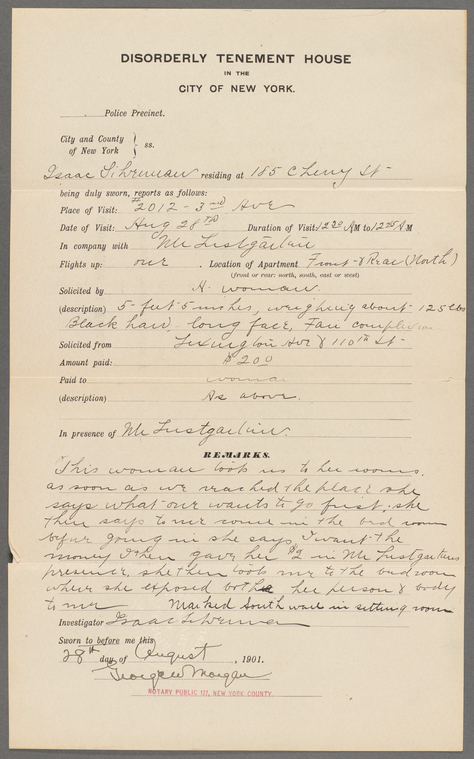 DISORDERLY TENEMENT HOUSE
IN THE
CITY OF NEW YORK.
Police Precinct.
City and County
of New York } ss.
Isaac Silverman residing at 185 Cherry St
being duly sworn, reports as follows:
Place of Visit: #2012 - 3rd Ave
Date of Visit: Aug 28th Duration of Visit: 12 20 AM to 12 25 AM
In company with Mr Lustgarten
Flights up: one. Location of Apartment Front & Rear (North)
(front or rear: north, south, east or west)
Solicited by A woman.
(description) 5 feet 5 inches, weighing about 125 lbs
Black hair long face, Fair complexion
Solicited from Lexington Ave & 110th St
Amount paid: $2 00
Paid to woman
(description) As above.
In presence of Mr Lustgarten.
REMARKS.
This woman took us to her rooms,
as soon as we reached the place she
says what one wants to go first. she
then says to me come in the bed room
before going in she says I want the
money I then gave her $2 in Mr Lustgartens
presence, she then took me to the bedroom
where she exposed both her person & body
to me Marked South wall in sitting room
Investigator Isaac Silverman
Sworn to before me this
28th day of August, 1901.
George W Morgan
NOTARY PUBLIC 127, NEW YORK COUNTY.